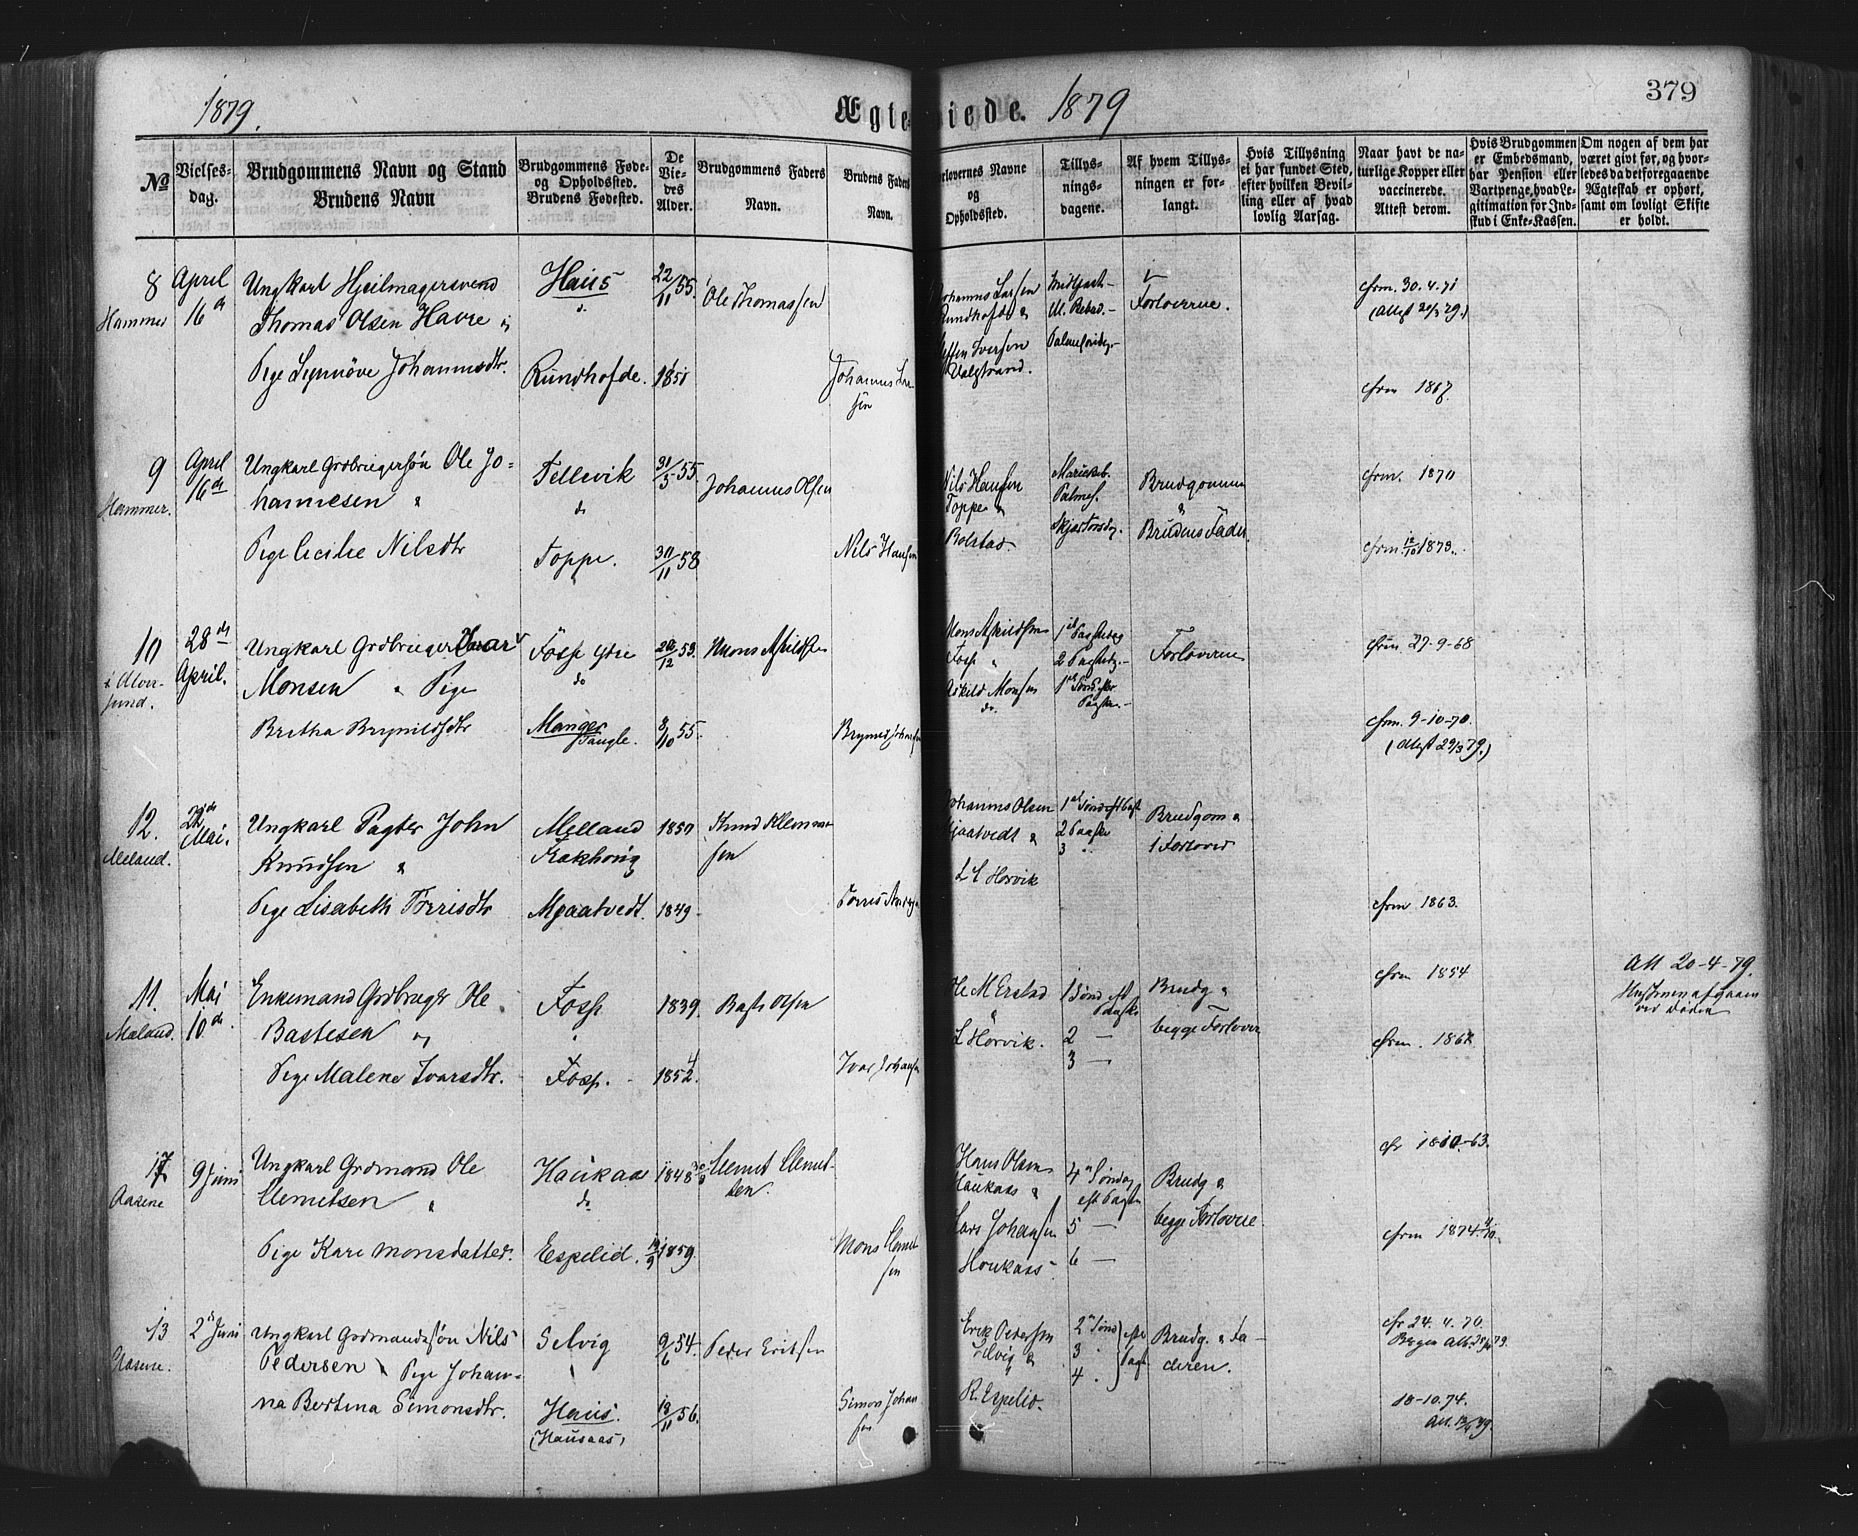 1879.
Ægte
iede.
1879
379
№
Vielses-
dag.
Brudgommens Navn og Stand
Brudens Navn
Brudgommens Føde-
og Opholdssted.
Brudens Fødested.
De
Vie-
des
Alder.
Brudgommens Faders
Navn.
Brudens Faders
Navn.
orlovernes Navne
og
Opholdssted.
Tillys-
nings-
dagene.
Af hvem Tillys-
ningen er for-
langt.
Hvis Tillysning
ei har fundet Sted,
efter hvilken Bevil-
ling eller af hvad
lovlig Aarsag.
Naar havt de na-
turlige Kopper eller
vaccinerede.
Attest derom.
Hvis Brudgommen
er Embedsmand,
har Pension eller
Vartpenge, hvad Le-
gitimation for Ind-
skud i Enke-Kassen.
Om nogen af dem har
været givt før, og hvor-
ledes da det foregaaende
Ægteskab er ophørt,
samt om lovligt Skifte
er holdt.
8
Hammer
April
16
Ungkarl Hjulmagersvend
Thomas Olsen Havre
Pige Synnøve Johannesdtr.
Haus
Rundhofde.
22/11 55.
1851
Ole Thomassen
Johannes Lar-
sen
Johannes Larsen
Rundhofde &
Forloverne.
cfrm. 30.4.71
cfrm 1867.
9
Hammer.
April
16de
Ungkarl Grdbrugersøn Ole Jo-
hannesen &
Pige Cecilie Nilsdtr
Tellevik
do
Toppe.
31/5 55.
30/11 58
Johannes Olsen
Nils Hansen
Nils Hansen
Toppe &
Bolstad.
Palmes.
Skjærtorsdg.
Brudgommen
&
Brudens Fader
cfrm. 1870
cfrm. 12/10 1873.
10
i Alver-
sund.
28de
April.
Ungkarl Grdbruger Ivar
Monsen & Pige
Bretha Brynildsdtr
Fosse ytre
do
Manger
Tangle.
20/12 53.
8/10 55.
Mons Askildsen
Mons Askildsen
Fosse &
Askild Monsen
do.
Forloverne
cfrm 27-9-68
cfrm. 9-10-70.
(Attest 29/3 79.)
12.
Meland.
22de
Mai.
Ungkarl Pagter John
Knudsen &
Pige Lisabeth Torrisdtr
Melland
Frækhoug
Mjaatvedt.
1850
1849
Knud Klemmet
sen
Johannes Olsen
Mjaatvedt &
L L Hørvik
2 Paaske
3
Brudgom &
1 Forlover
cfrm 1863.
11.
Meland.
Mai
10de.
Enkemand Grdbruger Ole
Bastesen &
Pige Malene Ivarsdtr.
Fosse
Fosse.
1839.
1852.
Baste Olsen
Ivar Johansen
Ole M Erstad
&
L Hørvik.
2 —
3 —
Brudg &
begge Forlover
cfrm 1854
cfrm. 1867
Att 20-4-79.
Hustruen afgaaen
ved Døden
17
Aasene
9 Juni
Ungkarl Grdmand Ole
Clemetsen &
Pige Kari Monsdatter.
Haukaas
do
Espelid.
1848
1859
Clemet Clemet-
sen.
Mons Clemet
sen
Hans Olsen
Haukaas &
Lars Johansen
Houkaas
4de Søndag
eft Paaske
5 —
6 —
Brudg &
begge Forlovere
cfrm 1874.
13
Aasene.
2de Juni
Ungkarl Grdmandssøn Nils
Pedersen & Pige Johan-
na Bertina Simonsdtr.
Selvig
Haus.
(Hausaas)
9/6 54.
18/11 56.
Peder Eriksen
Simon Johan
sen
Erik Pedersen
Selvig &
R. Espelid.
2de Sønd
3
4
efter
Paaske
Brudg. & Fa-
deren.
cfr 24.4.70.
18-10.74.